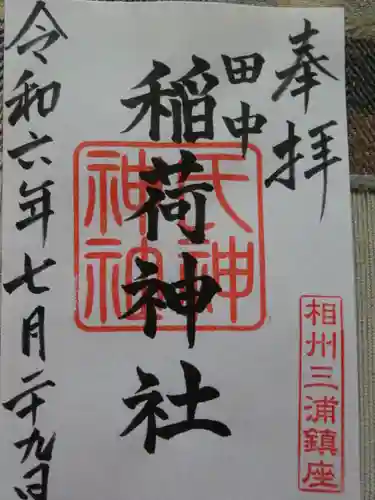 奉拝
田中
稲荷神社
氏神
神社
相州三浦鎮座
令和六年七月二十九日